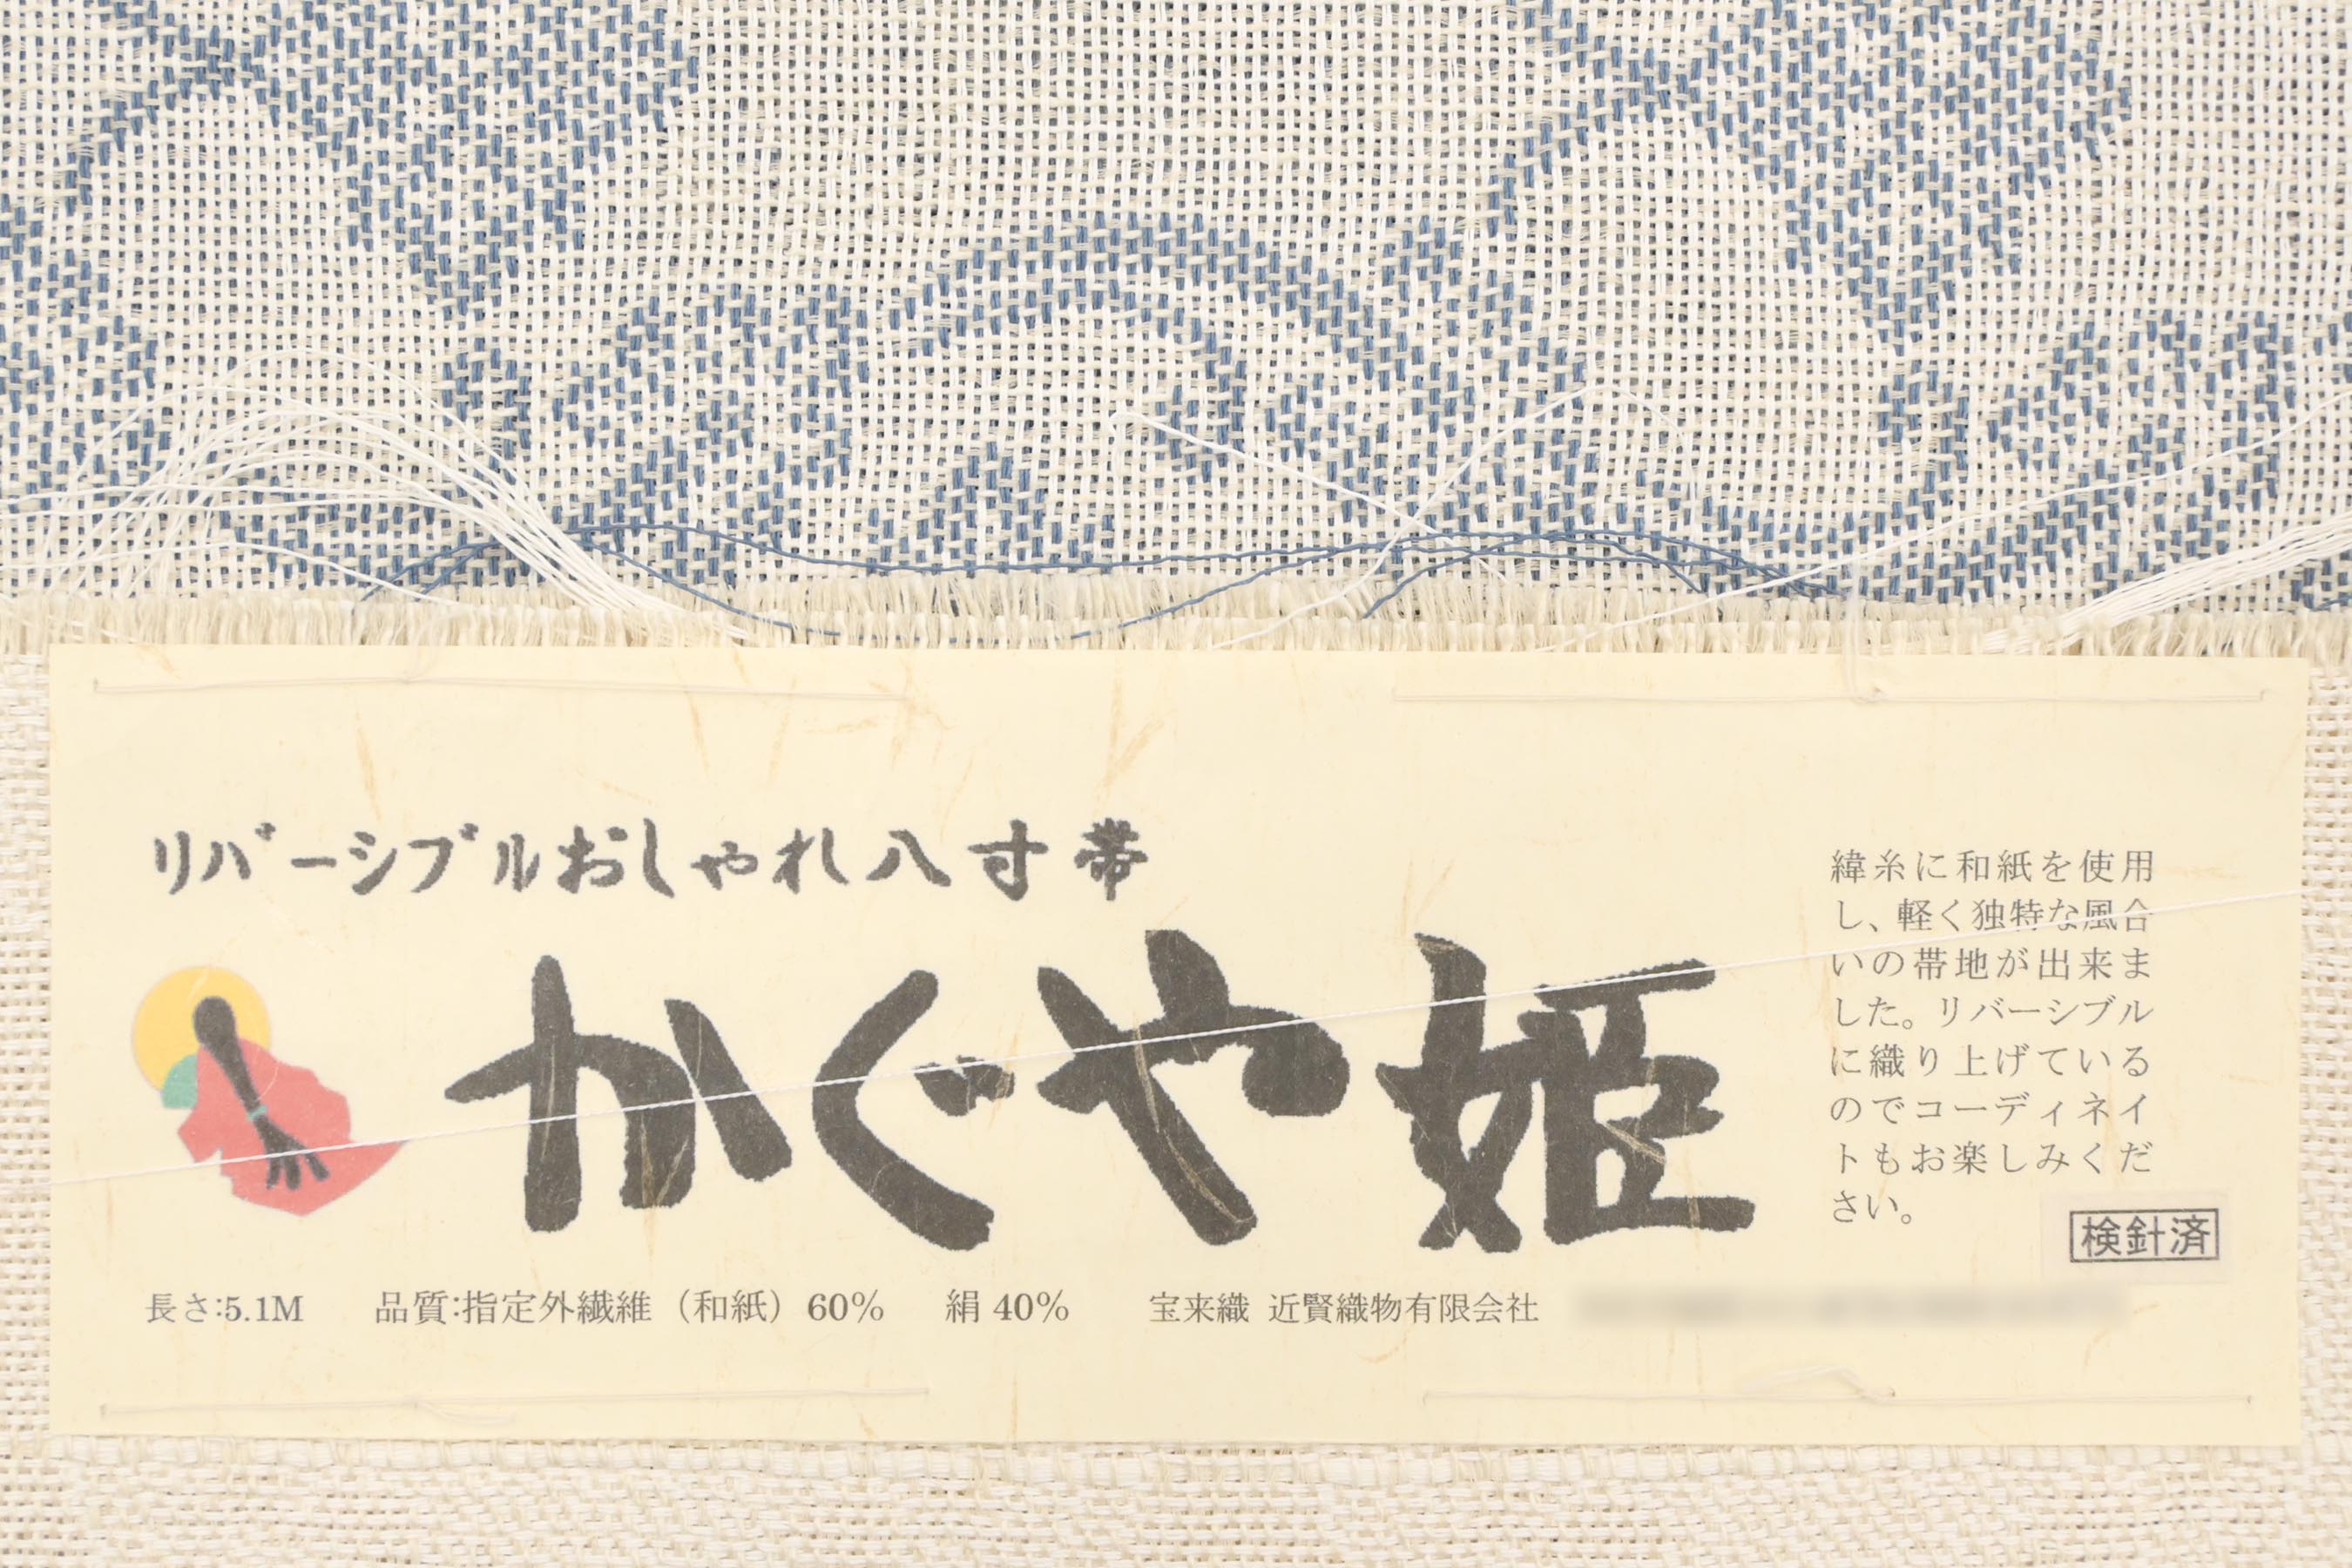 リバーシブルおしゃれ八寸帯
かぐや姫
緯糸に和紙を使用
し、軽く独特な風合
いの帯地が出来ま
した。リバーシブル
に織り上げている
のでコーディネイ
トもお楽しみくだ
さい。
検針済
長さ:5.1M 品質:指定外繊維（和紙）60% 絹 40% 宝来織 近賢織物有限会社